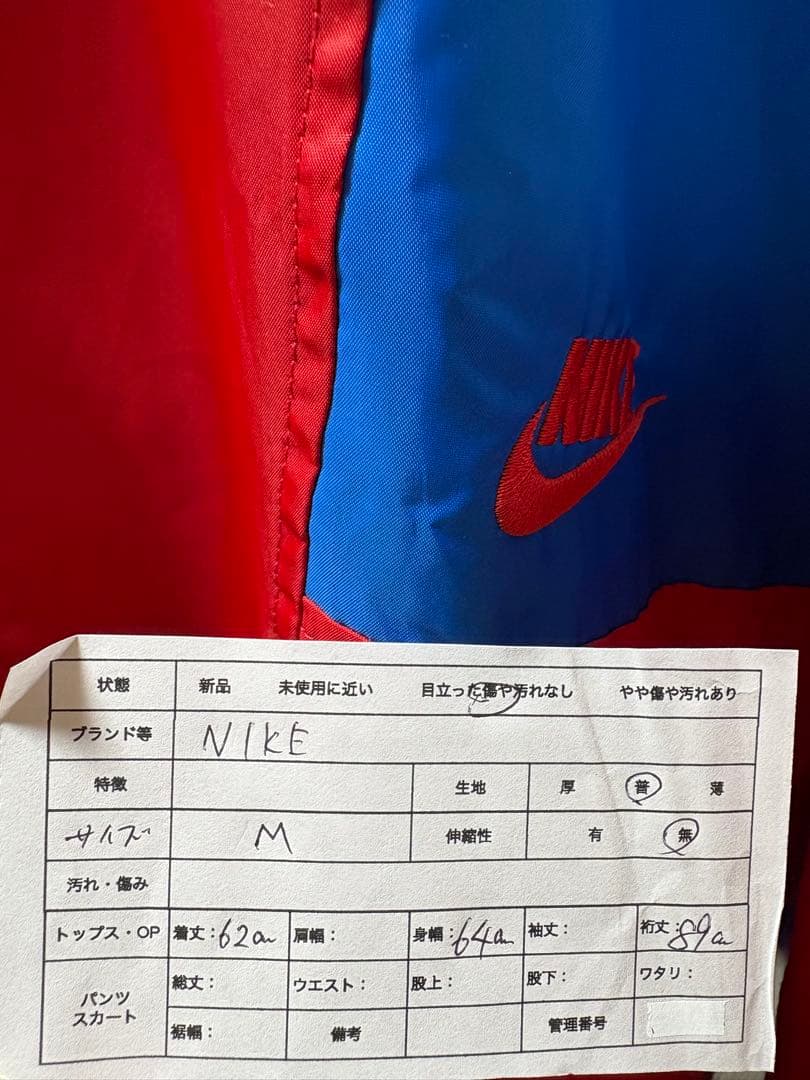 NIKE
状態 新品 未使用に近い 目立った傷や汚れなし やや傷や汚れあり
ブランド等 NIKE
特徴 生地 厚 普 薄
サイズ M 伸縮性 有 無
汚れ・傷み
トップス・OP 着丈:62cm 肩幅: 身幅:64cm 袖丈: 裄丈:89cm
パンツ スカート 総丈: ウエスト: 股上: 股下: ワタリ:
裾幅: 備考 管理番号